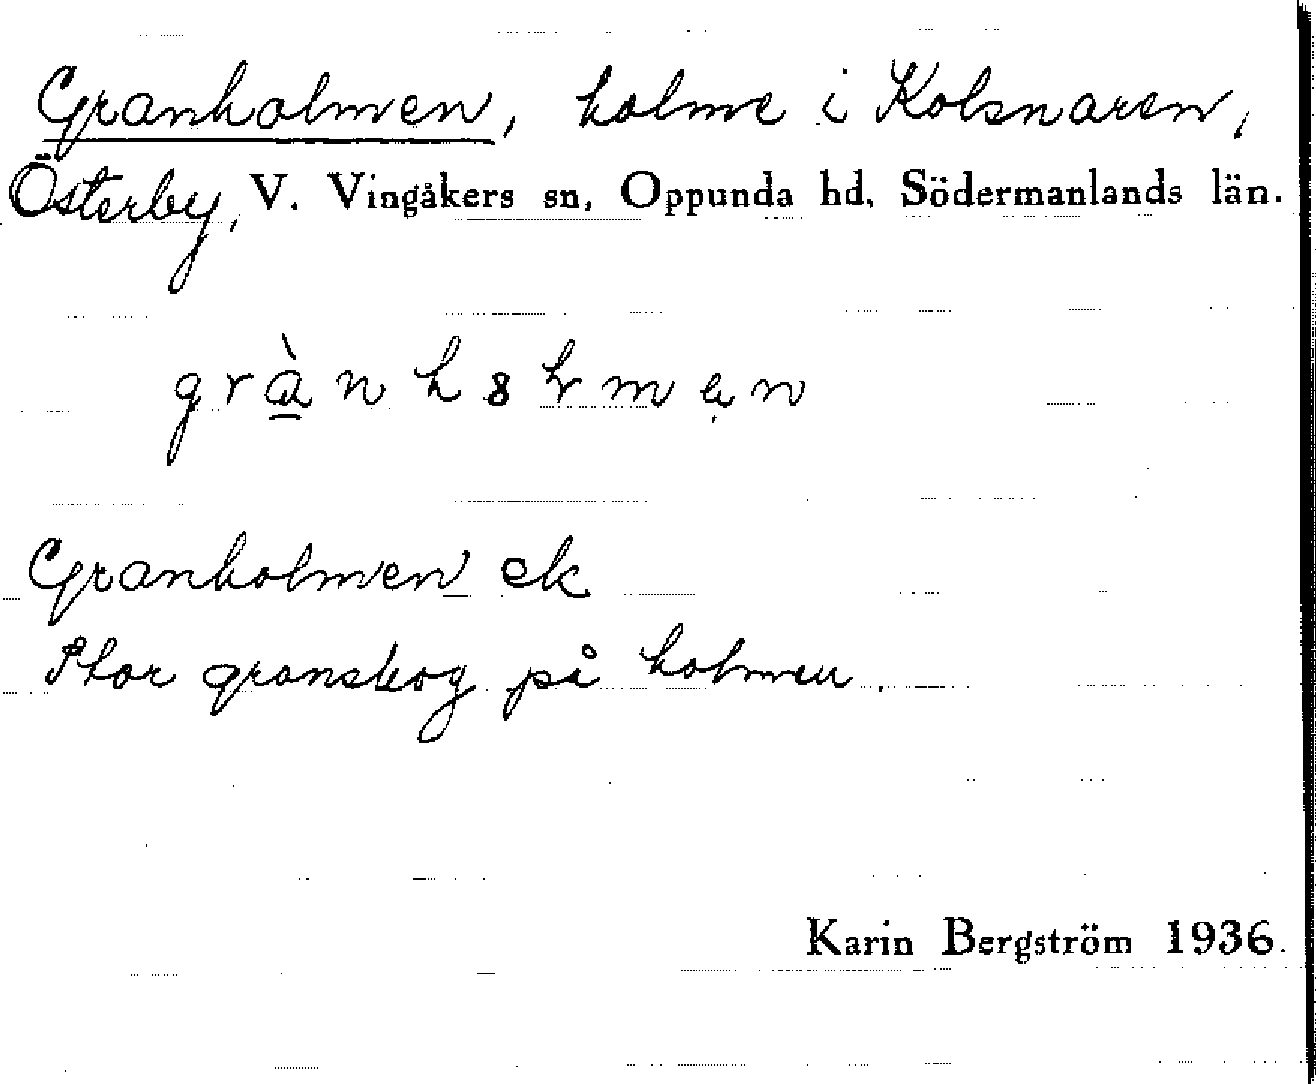 Granholmen, holme i Kolsnaren,
Österby, V. Vingåkers sn, Oppunda hd, Södermanlands län.
Granholmen ek
Stor granskog på holmen.
Karin Bergström 1936.